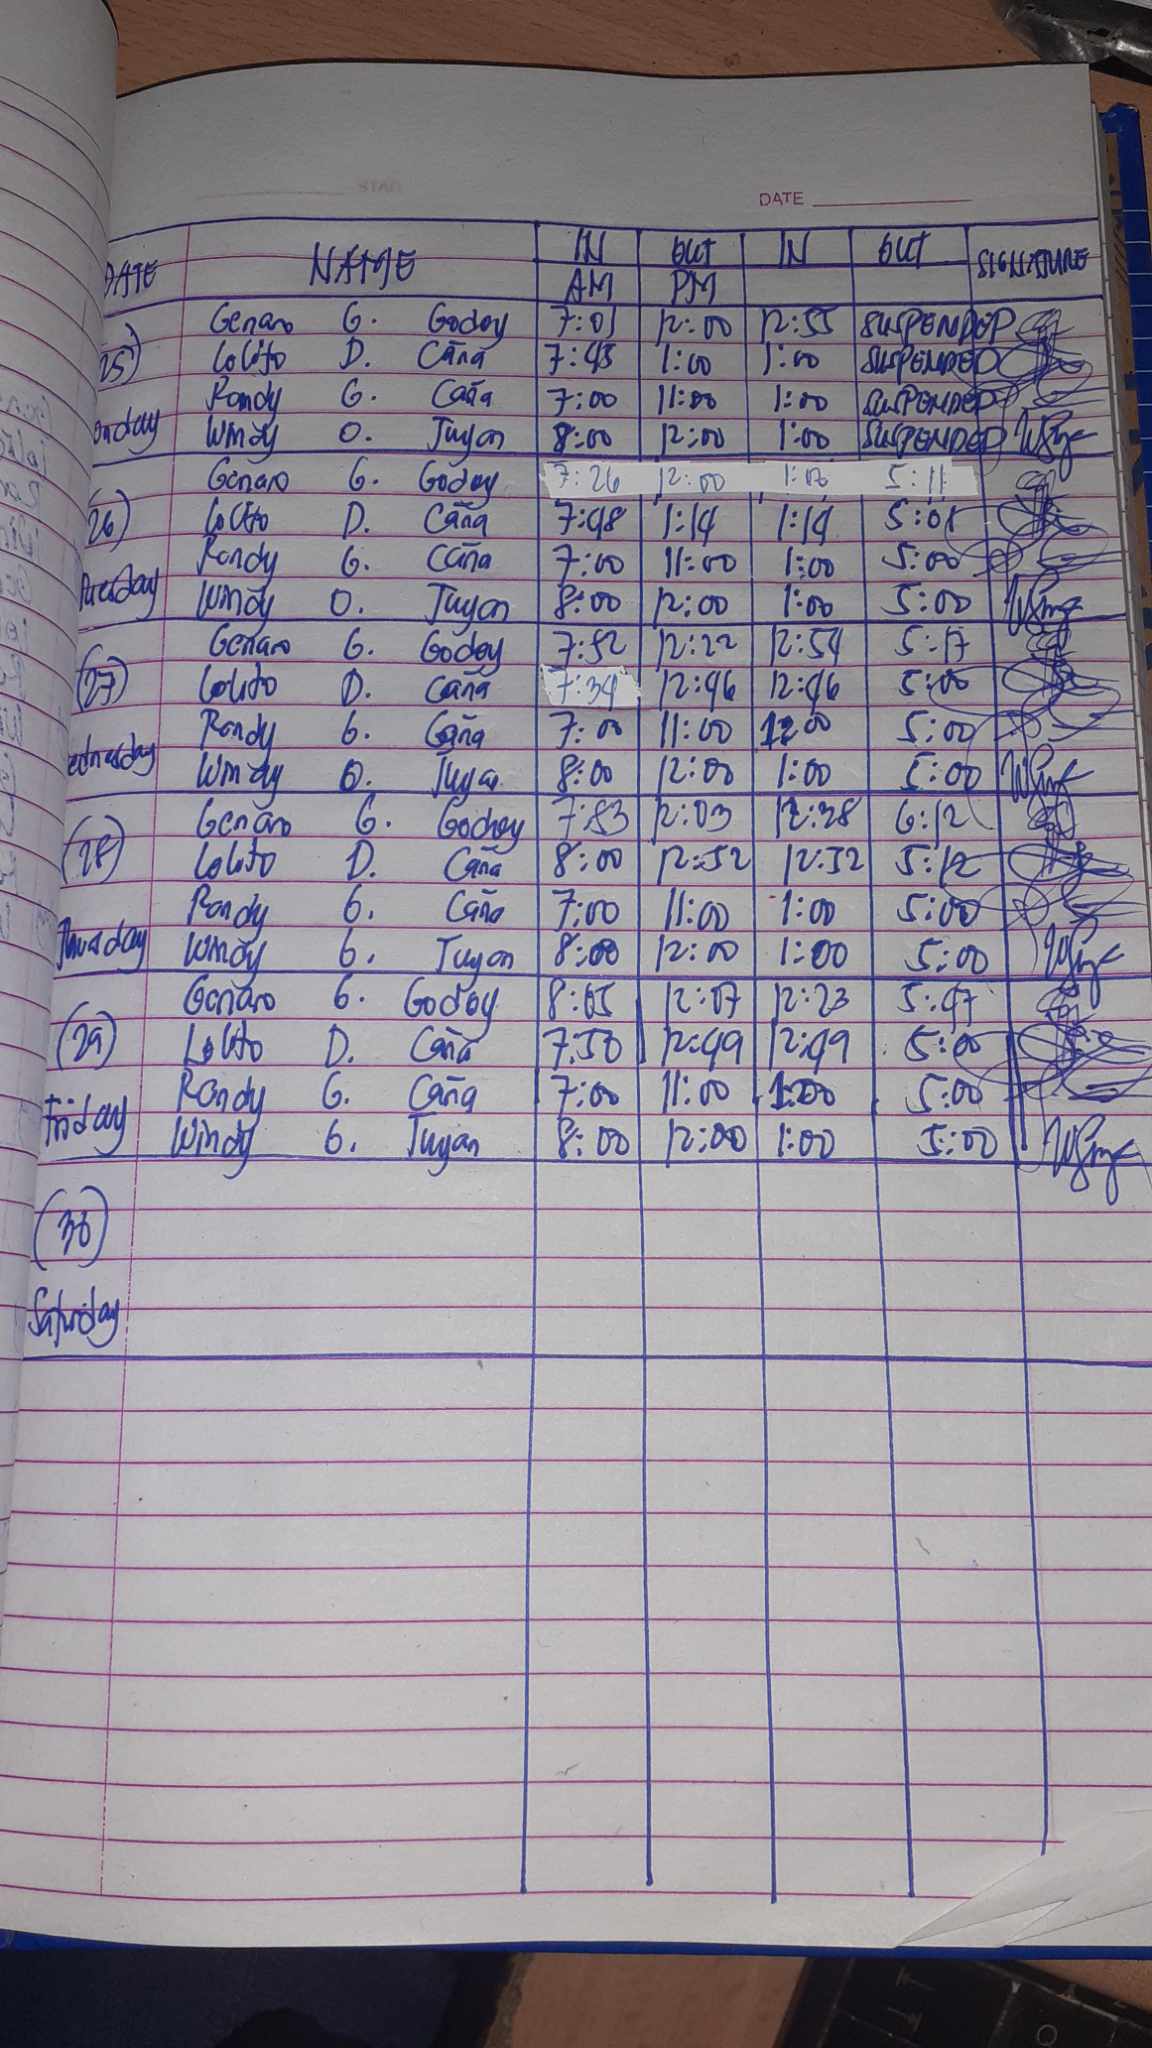 DATE
DATE NAME IN OUT IN OUT SIGNATURE
AM PM
Genaro G. Godoy 7:01 12:00 12:55 SUSPENDED
25) Lolito D. Caña 7:45 1:00 1:00 SUSPENDED
Randy G. Caña 7:00 11:00 1:00 SUSPENDED
onday Windy O. Tuyan 8:00 12:00 1:00 SUSPENDED
Genaro G. Godoy 7:26 12:00 1:06 5:11
26) Lolito D. Caña 7:48 1:14 1:14 5:01
Randy G. Caña 7:00 11:00 1:00 5:00
Tuesday Windy O. Tuyan 8:00 12:00 1:00 5:00
Genaro G. Godoy 7:52 12:22 12:54 5:17
(27) Lolito D. Caña 7:34 12:46 12:46 5:00
Randy G. Caña 7:00 11:00 12:00 5:00
ednesday Windy O. Tuyan 8:00 12:00 1:00 5:00
Genaro G. Godoy 7:53 12:03 12:38 6:12
(28) Lolito D. Caña 8:00 12:52 12:52 5:12
Randy G. Caña 7:00 11:00 1:00 5:00
Thursday Windy G. Tuyan 8:00 12:00 1:00 5:00
Genaro G. Godoy 8:05 12:07 12:23 5:47
(29) Lolito D. Caña 7:50 12:49 12:49 5:00
Randy G. Caña 7:00 11:00 1:00 5:00
Friday Windy G. Tuyan 8:00 12:00 1:00 5:00
(30)
Saturday